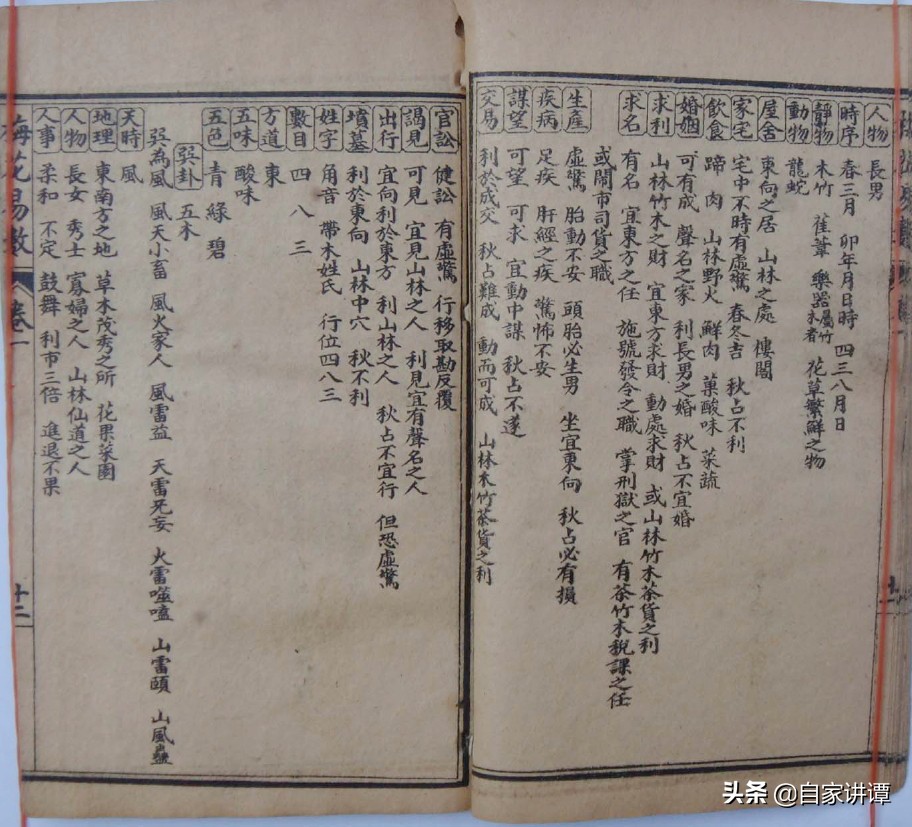 人物 長男
時序 春三月 卯年月日時 四三八月日
靜物 木竹 萑葦 樂器屬竹木者 花草繁鮮之物
動物 龍蛇
屋舍 東向之居 山林之處 樓閣
家宅 宅中不時有虛驚 春冬吉 秋占不利
飲食 蹄 肉 山林野火 鮮肉 菓酸味 菜蔬
婚姻 可有成 聲名之家 利長男之婚 秋占不宜婚
求利 山林竹木之財 宜東方求財 動處求財 或山林竹木茶貨之利
求名 有名 宜東方之任 施號發令之職 掌刑獄之官 有茶竹木稅課之任
或鬧市司貨之職
生產 虛驚 胎動不安 頭胎必生男 坐宜東向 秋占必有損
疾病 足疾 肝經之疾 驚怖不安
謀望 可望 可求 宜動中謀 秋占不遂
交易 利於成交 秋占難成 動而可成 山林木竹茶貨之利
官訟 健訟 有虛驚 行移取勘反覆
謁見 可見 宜見山林之人 利見宜有聲名之人
出行 宜向利於東方 利山林之人 秋占不宜行 但恐虛驚
墳墓 利於東向 山林中穴 秋不利
姓字 角音 帶木姓氏 行位四八三
數目 四 八 三
方道 東
五味 酸味
五色 青 綠 碧
巽卦 五木
巽為風 風天小畜 風火家人 風雷益 天雷无妄 火雷噬嗑 山雷頤 山風蠱
天時 風
地理 東南方之地 草木茂秀之所 花果菜園
人物 長女 秀士 寡婦之人 山林仙道之人
人事 柔和 不定 鼓舞 利市三倍 進退不果
梅花易數 卷一 十二
头条 @自家讲谭